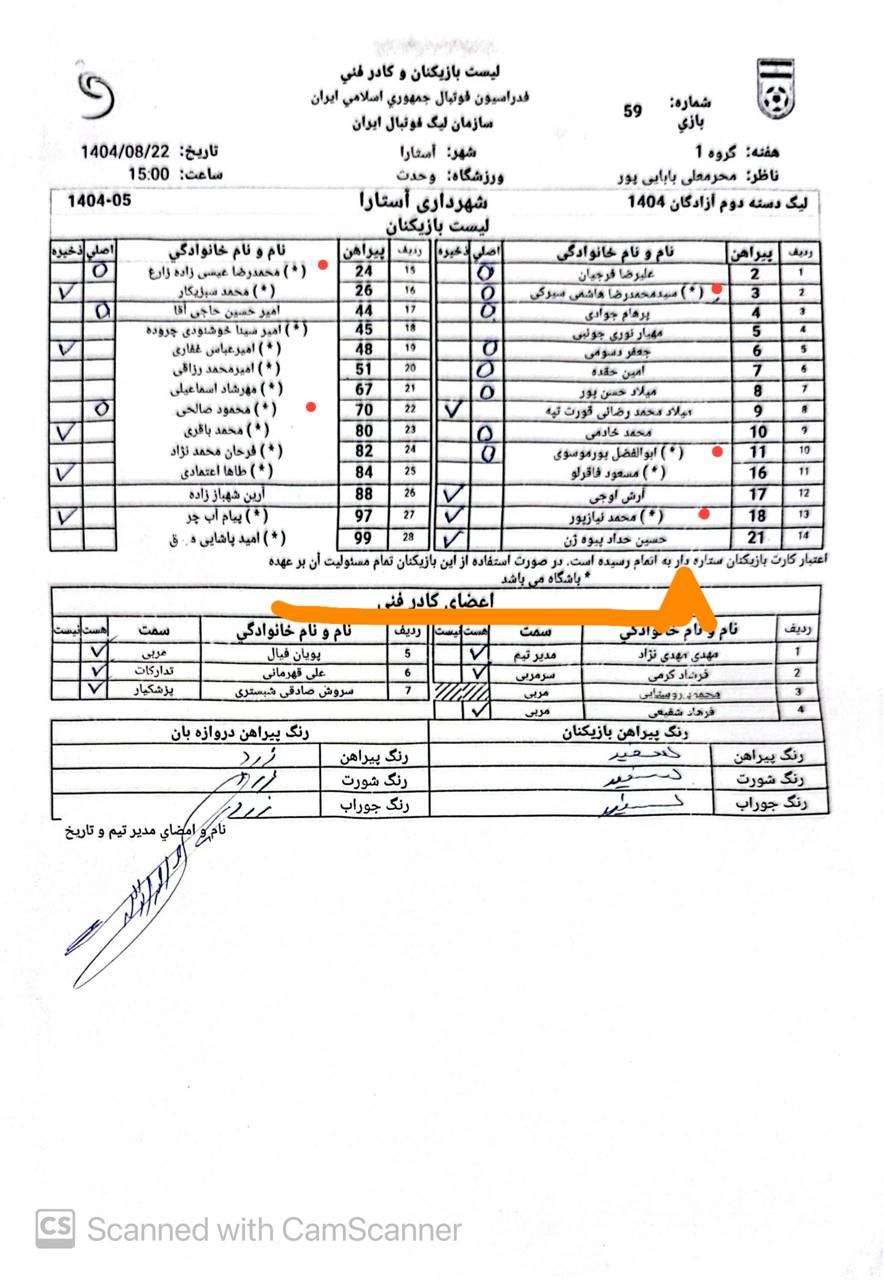 لیست بازیکنان و کادر فني
فدراسیون فوتبال جمهوري اسلامي ایران
سازمان لیگ فوتبال ایران
شماره بازي: 59
هفته: گروه 1 شهر: آستارا تاریخ: 1404/08/22
ناظر: محرمعلی بابایی پور ورزشگاه: وحدت ساعت: 15:00
لیگ دسته دوم آزادگان 1404 شهرداری آستارا 1404-05
لیست بازیکنان
ردیف پیراهن نام و نام خانوادگي اصلي ذخیره ردیف پیراهن نام و نام خانوادگي اصلي ذخیره
1 2 علیرضا فرجیان O 15 24 (*) محمدرضا عیسی زاده زارع O
2 3 (*) سیدمحمدرضا هاشمی سیرکی O 16 26 (*) محمد سبزیکار ✓
3 4 پرهام جوادی O 17 44 امیر حسین حاجی آقا O
4 5 مهیار نوری جونبی 18 45 (*) امیر سینا خوشنودی چروده
5 6 جعفر رسومی O 19 48 (*) امیرعباس غفاری ✓
6 7 امین حقده O 20 51 (*) امیرمحمد رزاقی
7 8 میلاد حسن پور O 21 67 (*) مهرشاد اسماعیلی
8 9 میلاد محمد رضائی قورت تپه ✓ 22 70 (*) محمود صالحی O
9 10 محمد خادمی O 23 80 (*) محمد باقری ✓
10 11 (*) ابوالفضل پورموسوی O 24 82 (*) فرحان محمد نژاد
11 16 (*) مسعود فاقرلو 25 84 (*) طاها اعتمادی ✓
12 17 آرش اوجی ✓ 26 88 آرین شهباز زاده
13 18 (*) محمد نیازپور ✓ 27 97 (*) پیام آب چر ✓
14 21 حسین حداد پیوه ژن ✓ 28 99 (*) امید پاشایی ه . ق
اعتبار کارت بازیکنان ستاره دار به اتمام رسیده است. در صورت استفاده از این بازیکنان تمام مسئولیت آن بر عهده
* باشگاه می باشد
اعضای کادر فنی
ردیف نام و نام خانوادگي سمت هست نیست ردیف نام و نام خانوادگي سمت هست نیست
1 مهدی مهدی نژاد مدیر تیم ✓ 5 پویان فیال مربی ✓
2 فرشاد کرمی سرمربی ✓ 6 علی قهرمانی تدارکات ✓
3 محمود روستایی مربی 7 سروش صادقی شبستری پزشکیار ✓
4 فرهاد شفیعی مربی ✓
رنگ پیراهن بازیکنان رنگ پیراهن دروازه بان
رنگ پیراهن سفید رنگ پیراهن زرد
رنگ شورت سفید رنگ شورت زرد
رنگ جوراب سفید رنگ جوراب زرد
نام و امضاي مدیر تیم و تاریخ
CS Scanned with CamScanner